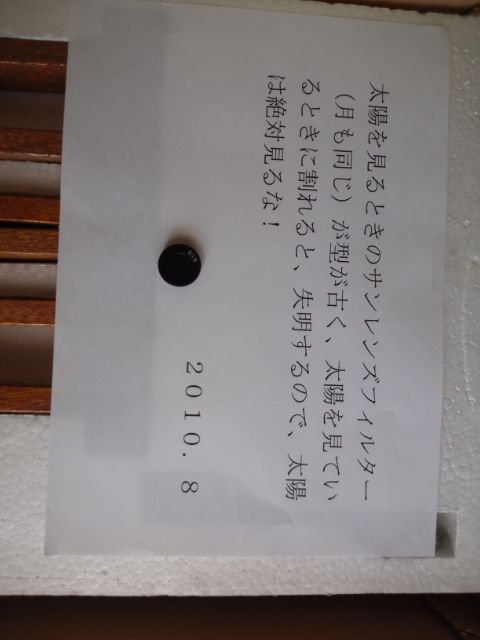 太陽を見るときのサンレンズフィルター
(月も同じ)が型が古く、太陽を見てい
るときに割れると、失明するので、太陽
は絶対見るな!
2010.8